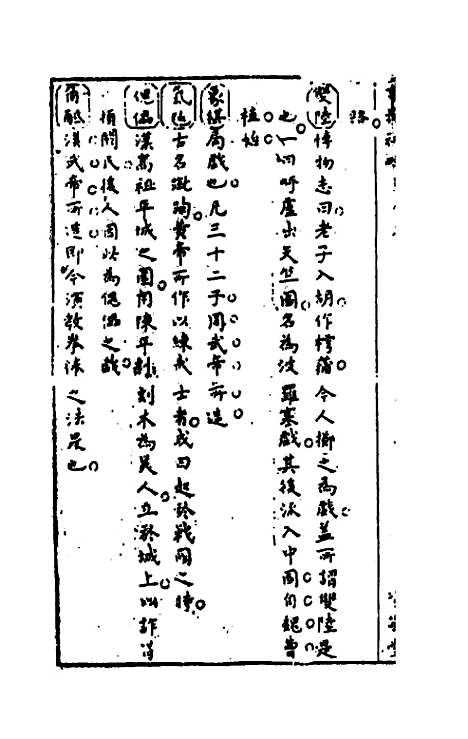 路
雙陸博物志曰老子入胡作樗蒲令人擲之為戲盖所謂雙陸是
也一曰呼盧出天竺國名為波羅塞戲其後流入中國自魏曹
植始
象棋局戲也凡三十二子周武帝所造
氣毬古名蹴踘黄帝所作以練武士者或曰起於戰國之時
傀儡漢高祖平城之圍閼陳平刻木為美人立於城上以詐
閼氏後人因此為傀儡之戲
角觝漢武帝所造即今演教拳法之法是也